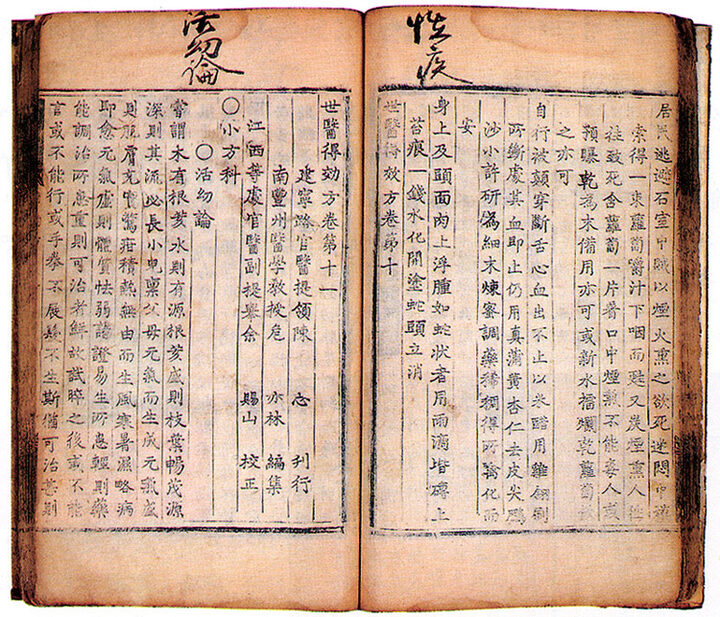 怪疾
居民逃避石室中賊以煙火熏之欲死迷悶中摸
索得一束蘿蔔嚼汁下咽而甦又炭煙熏人往
往致死含蘿蔔一片著口中煙氣不能害人或
預曝乾為末備用亦可或新水擂爛乾蘿蔔飲
之亦可
自行被顛穿斷舌心血出不止以米醋用雞翎刷
所斷處其血即止仍用真蒲黃杏仁去皮尖鵬
沙少許研為細末煉蜜調藥稀稠得所噙化而
安
身上及頭面肉上浮腫如蛇狀者用雨滴堦磚上
苔痕一錢水化開塗蛇頭立消
世醫得効方卷第十
活幼論
世醫得効方卷第十一
建寧路官醫提領陳 志 刊行
南豐州醫學教授危 亦林 編集
江西等處官醫副提舉余 賜山 校正
○小方科
○活幼論
嘗謂木有根荄水則有源根荄盛則枝葉暢茂源
深則其流必長小兒稟父母元氣而生成元氣盛
則肌膚充實驚疳積熱無由而生風寒暑濕略病
即愈元氣虛則體質怯弱諸證易生所患輕則藥
能調治所患重則可治者鮮故試晬之後或不能
言或不能行或手拳不展髮不生斯猶可治甚則